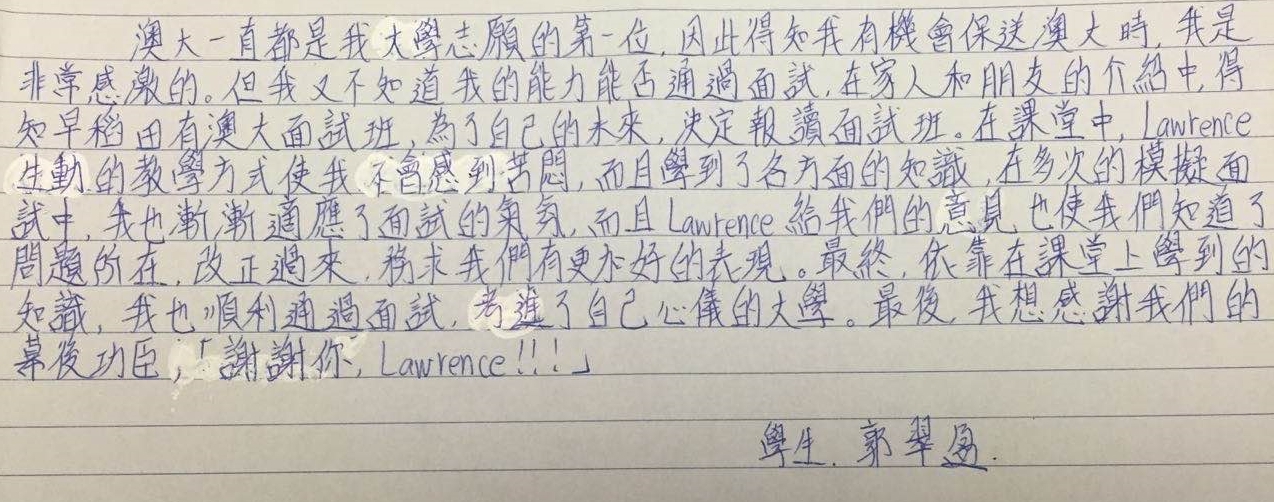 澳大一直都是我大學志願的第一位,因此得知我有機會保送澳大時,我是
非常感激的。但我又不知道我的能力能否通過面試,在家人和朋友的介紹中,得
知早稻田有澳大面試班,為了自己的未來,決定報讀面試班。在課堂中,Lawrence
生動的教學方式使我不會感到苦悶,而且學到了各方面的知識,在多次的模擬面
試中,我也漸漸適應了面試的氣氛,而且Lawrence給我們的意見也使我們知道了
問題所在,改正過來,務求我們有更加好的表現。最終,依靠在課堂上學到的
知識,我也順利通過面試,考進了自己心儀的大學。最後,我想感謝我們的
幕後功臣,「謝謝你,Lawrence!!!」
學生.郭翠盈.